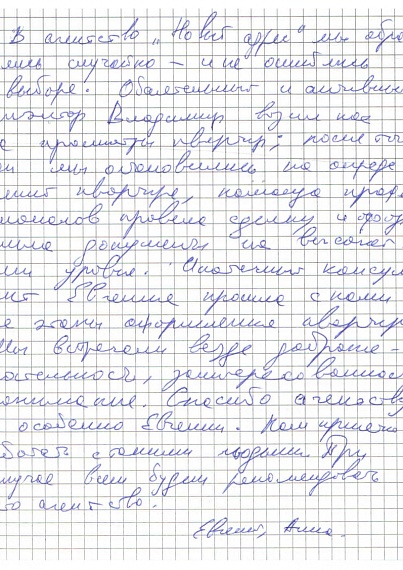 В агентство „Новый адрес" мы обра
лись случайно – и не ошиблись
выборе. Обаятельный и активный
риэлтор Владимир возил нас
просмотры квартир; после того
мы остановились на опреде
квартире, команда проф
провела сделку и
документы на высочай
уровне. Ипотечный консул
Евгения прошла с нами
этапы оформления квартир
Мы встречали везде доброже-
ательность, заинтересованнос
понимание. Спасибо агенству
особенно Евгении. Нам приятно
ботать с такими людьми. При
лучае всем будем рекомендовать
агентство.
Евгений, Анна.